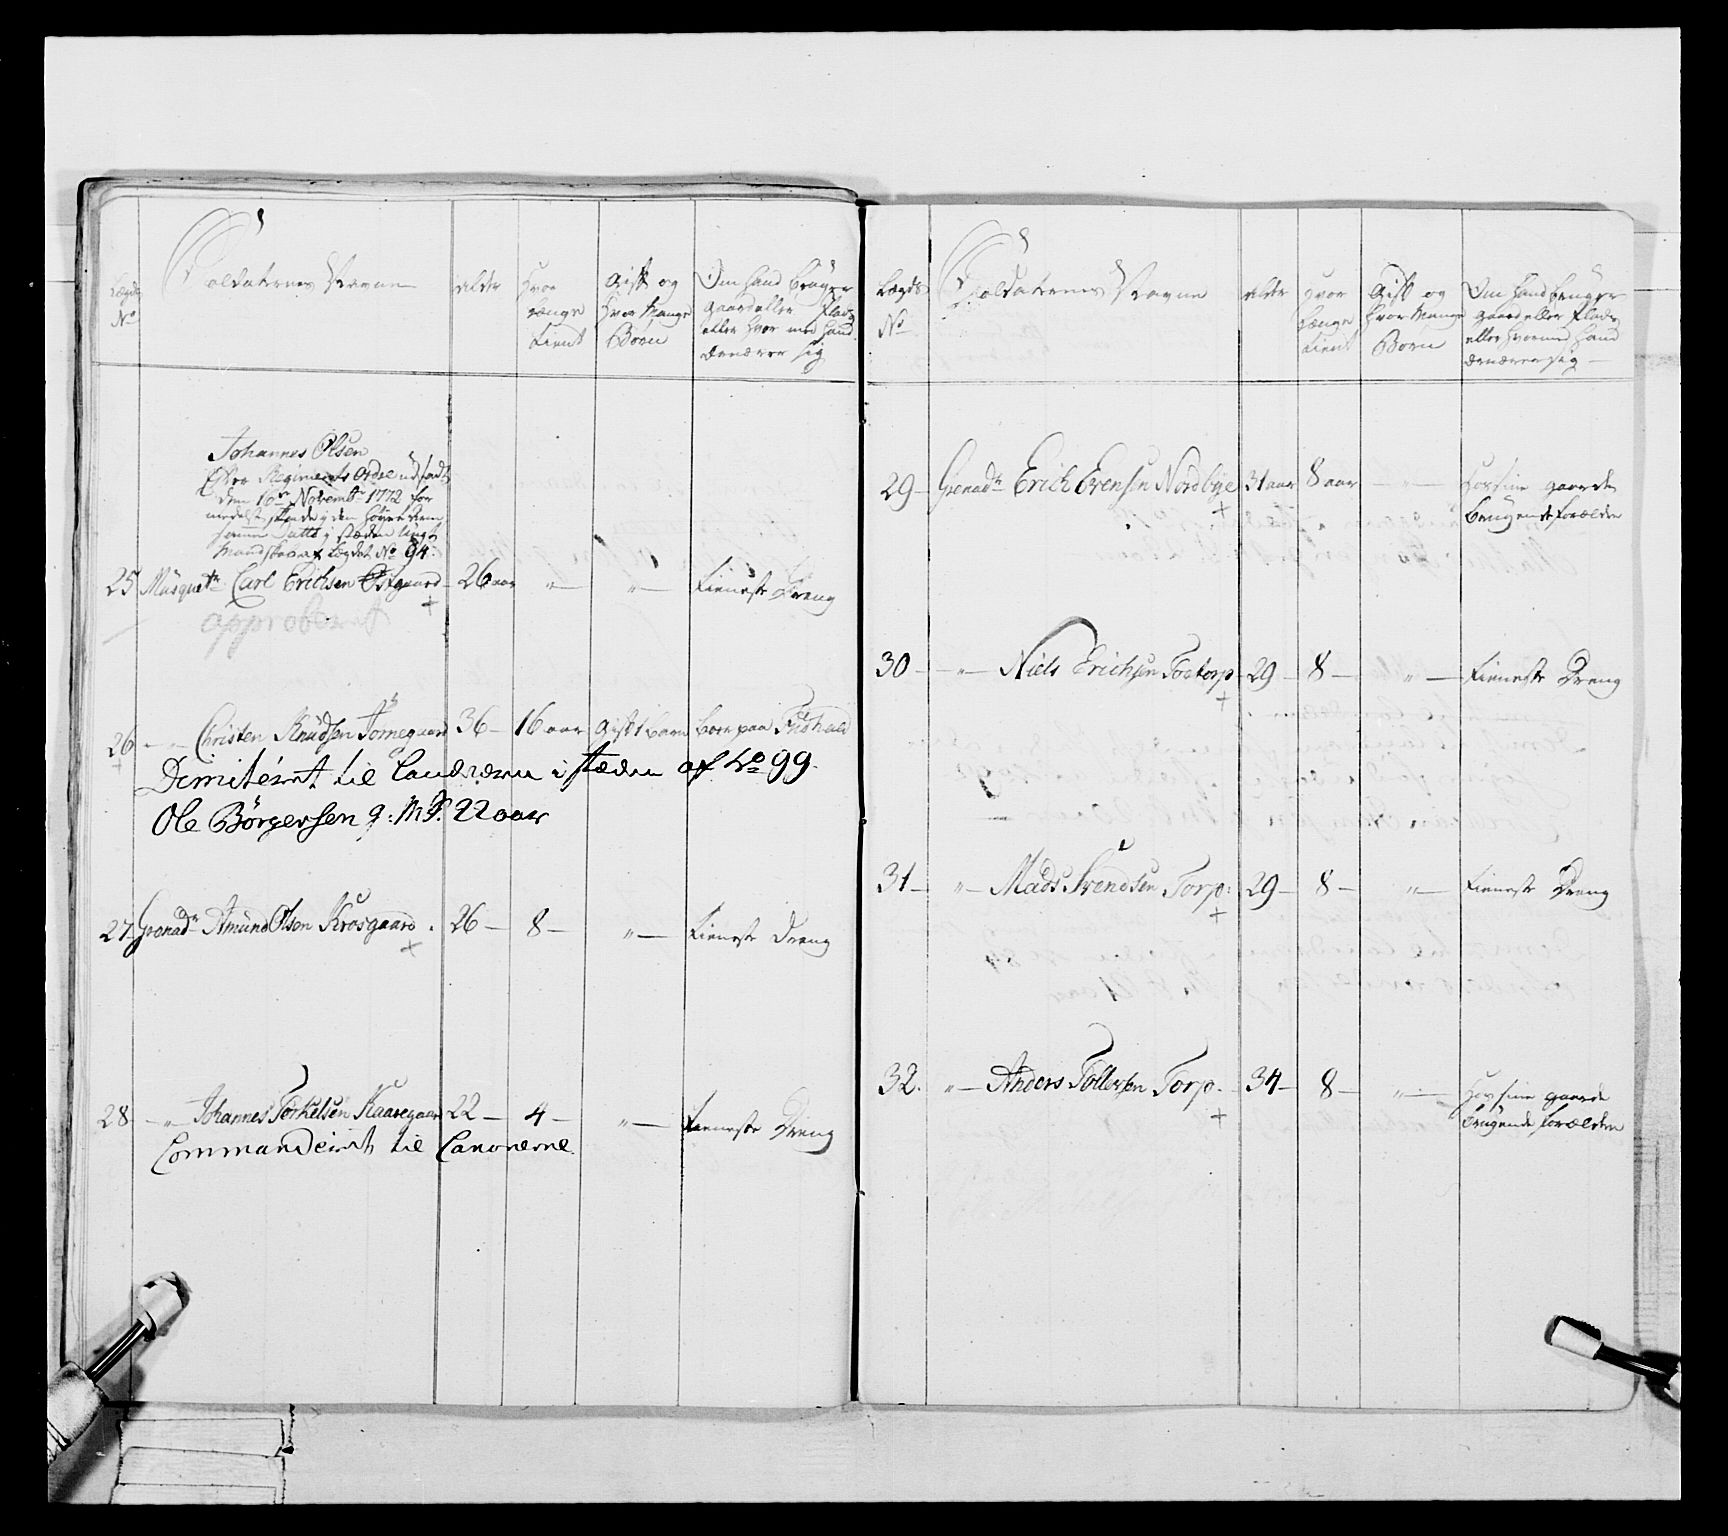 Lægds No
Soldaternes Navne
alder
Hvor længe tient
Gift og Hvor Mange Børn
Om Hand bruger gaard eller Plads eller Hvor med Hand Ernærer sig
Johannes Olsen
Efter Regiments Ordre udsadt
den 16de Novembr 1772 for
medelst skade i den Høyre Arm
af Lægdet No 94.
25 Musquetr Carl Erichsen Østgaard 26 aar " — " — tieneste Dreng
approberet
26 " Christen Knudsen Tornegaard 36 — 16 aar Gift 1 barn boer paa
Dimiteret til Landværn i stæden af No 99.
Ole Børgersen g: M S. 22 aar
27 Grenadr Amund Olsen Krosgaard. 26 — 8 — " — tieneste Dreng
28 — " — Johannes Torkelsen Kaaregaard 22 — 4 — " — tieneste Dreng
Commanderet til Canonerne
Lægds No
Soldaternes Navne
alder
Hvor længe tient
Gift og Hvor Mange Børn
Om Hand bruger gaard eller Plads eller Hvormed Hand ernærer sig
29 — Grenadr Erich Evensen Nordbye 31 aar 8 aar — " — Hos sine gaarde
brugende forældre
30 — " — Niels Erichsen Toetorp 29 — 8 — " — tieneste Dreng
31 — " — Mads Svendsen Torp: 29 — 8 — " — tieneste Dreng
32. " — Anders Tollersen Torp. 34 — 8 — " — Hos sine gaarde
brugende forældre